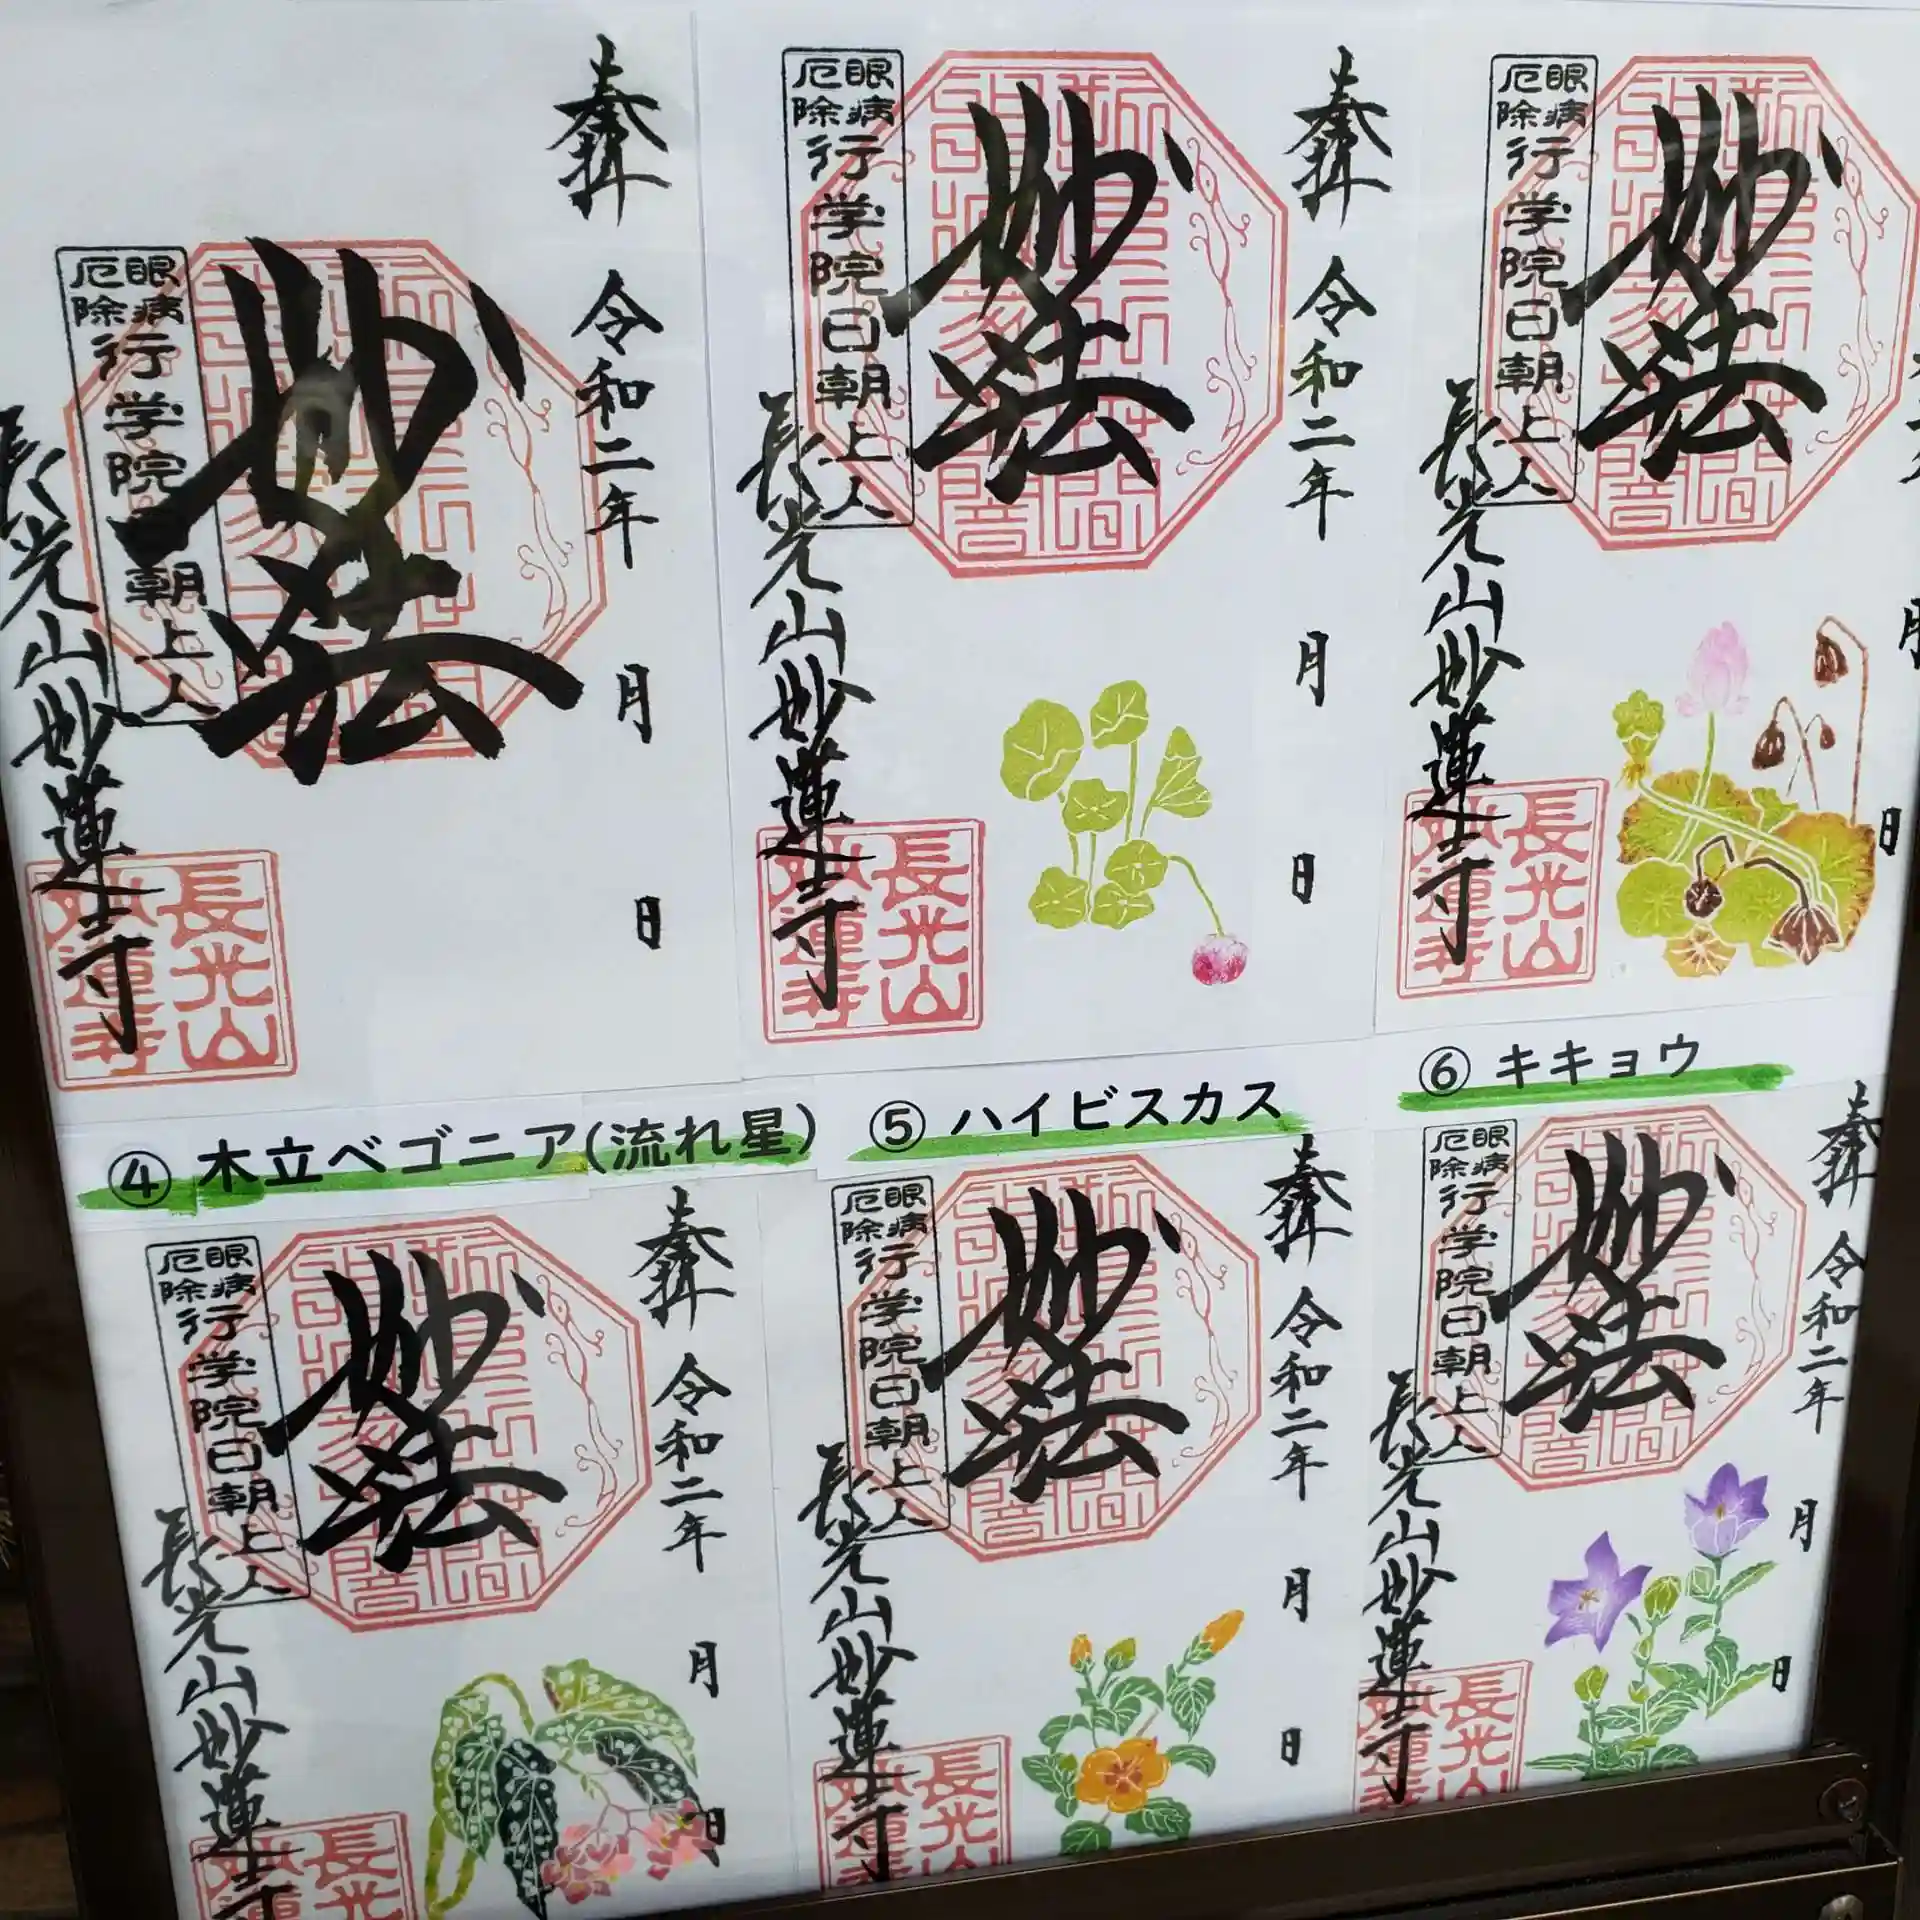 奉拝
令和二年
月
日
妙法
眼病
厄除
行学院日朝上人
長光山妙蓮寺
長光山
妙蓮寺
奉拝
令和二年
月
日
妙法
眼病
厄除
行学院日朝上人
長光山妙蓮寺
長光山
妙蓮寺
月
日
妙法
眼病
厄除
行学院日朝上人
長光山妙蓮寺
長光山
妙蓮寺
④ 木立ベゴニア(流れ星)
奉拝
令和二年
月
日
妙法
眼病
厄除
行学院日朝上人
長光山妙蓮寺
長光
妙蓮
⑤ ハイビスカス
奉拝
令和二年
月
日
妙法
眼病
厄除
行学院日朝上人
長光山妙蓮寺
長光山
妙蓮寺
⑥ キキョウ
奉拝
令和二年
月
日
妙法
眼病
厄除
行学院日朝上人
長光山妙蓮寺
長光山
妙蓮寺